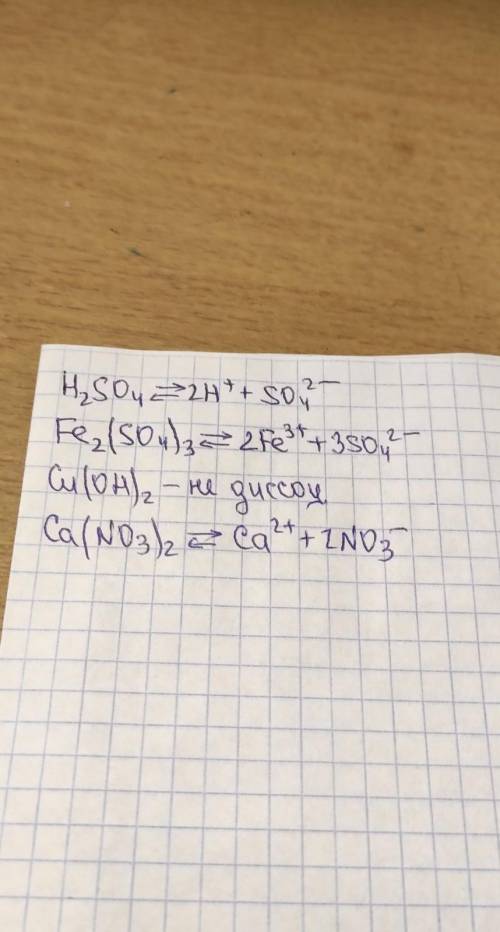 H₂SO₄ ⇄ 2H⁺ + SO₄²⁻
Fe₂(SO₄)₃ ⇄ 2Fe³⁺ + 3SO₄²⁻
Cu(OH)₂ – не диссоц
Ca(NO₃)₂ ⇄ Ca²⁺ + 2NO₃⁻